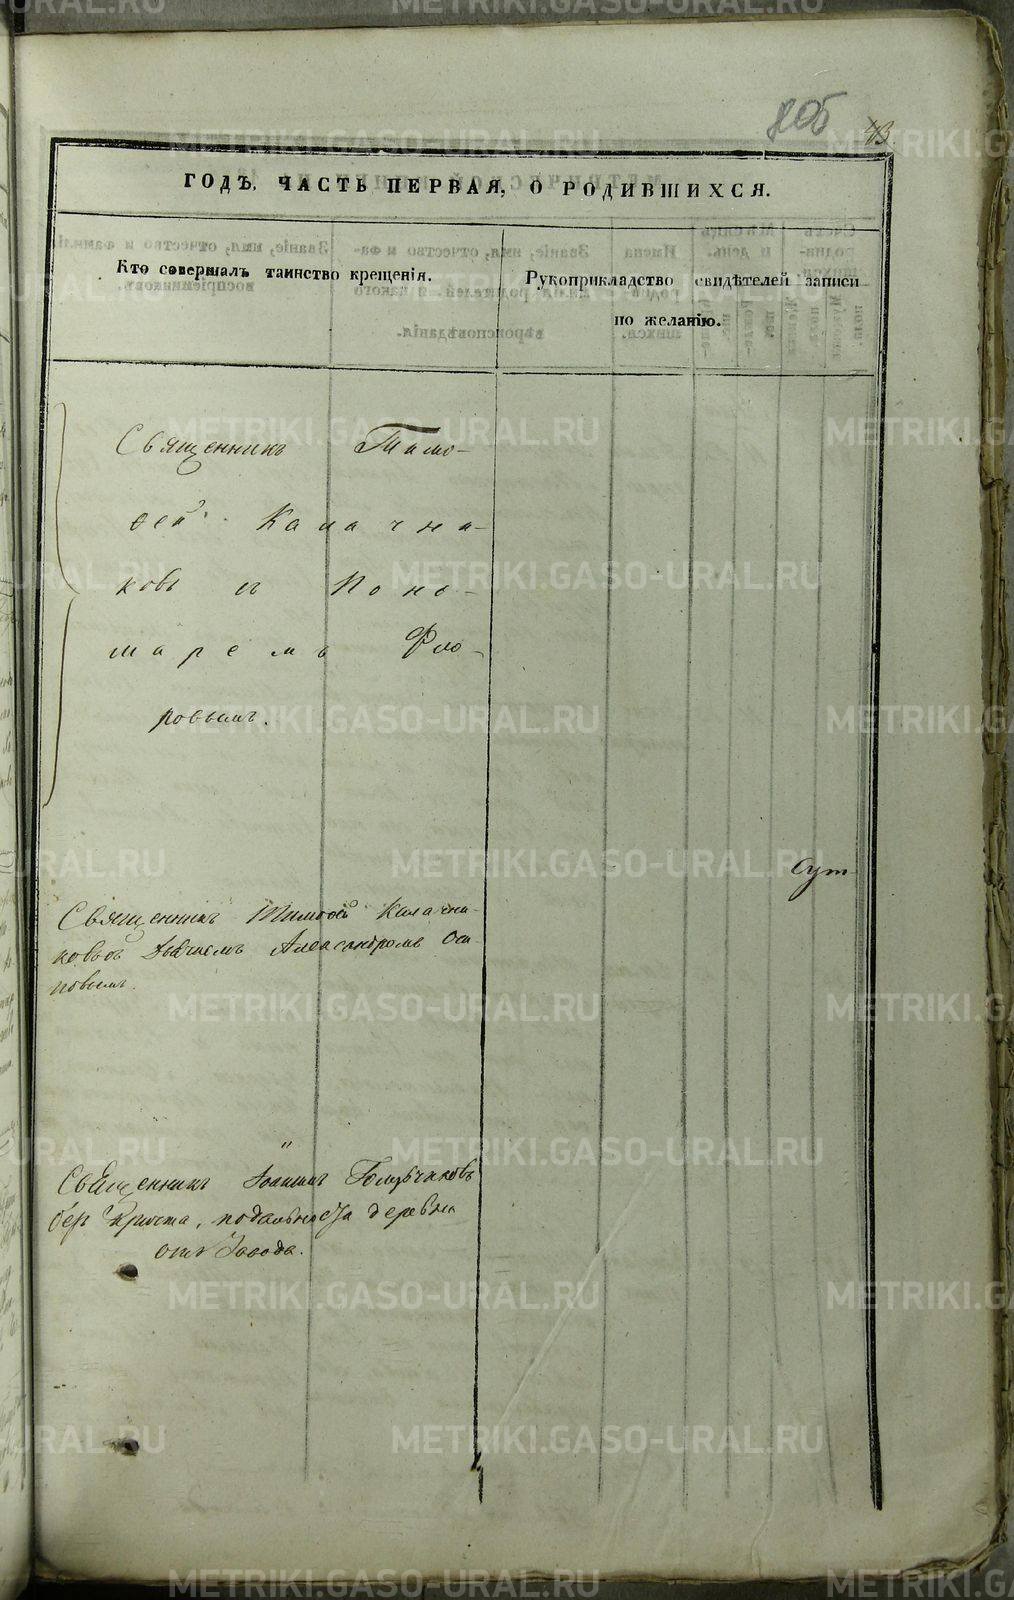 805
43.
ГОДЪ. ЧАСТЬ ПЕРВАЯ, О РОДИВШИХСЯ.
Кто совершалъ таинство крещенія.
Рукоприкладство свидѣтелей записи
по желанію.
Священникъ Тимо-
ѳей Калачни-
ковъ съ Поно-
маремъ Фло-
ровымъ.
Священникъ Тимоѳей Калачни-
ковъ съ Дьячкомъ Александромъ Оси-
повымъ.
Священникъ Іоаннъ
безъ Причта, по дальности деревни
отъ Завода.
METRIKI.GASO-URAL.RU